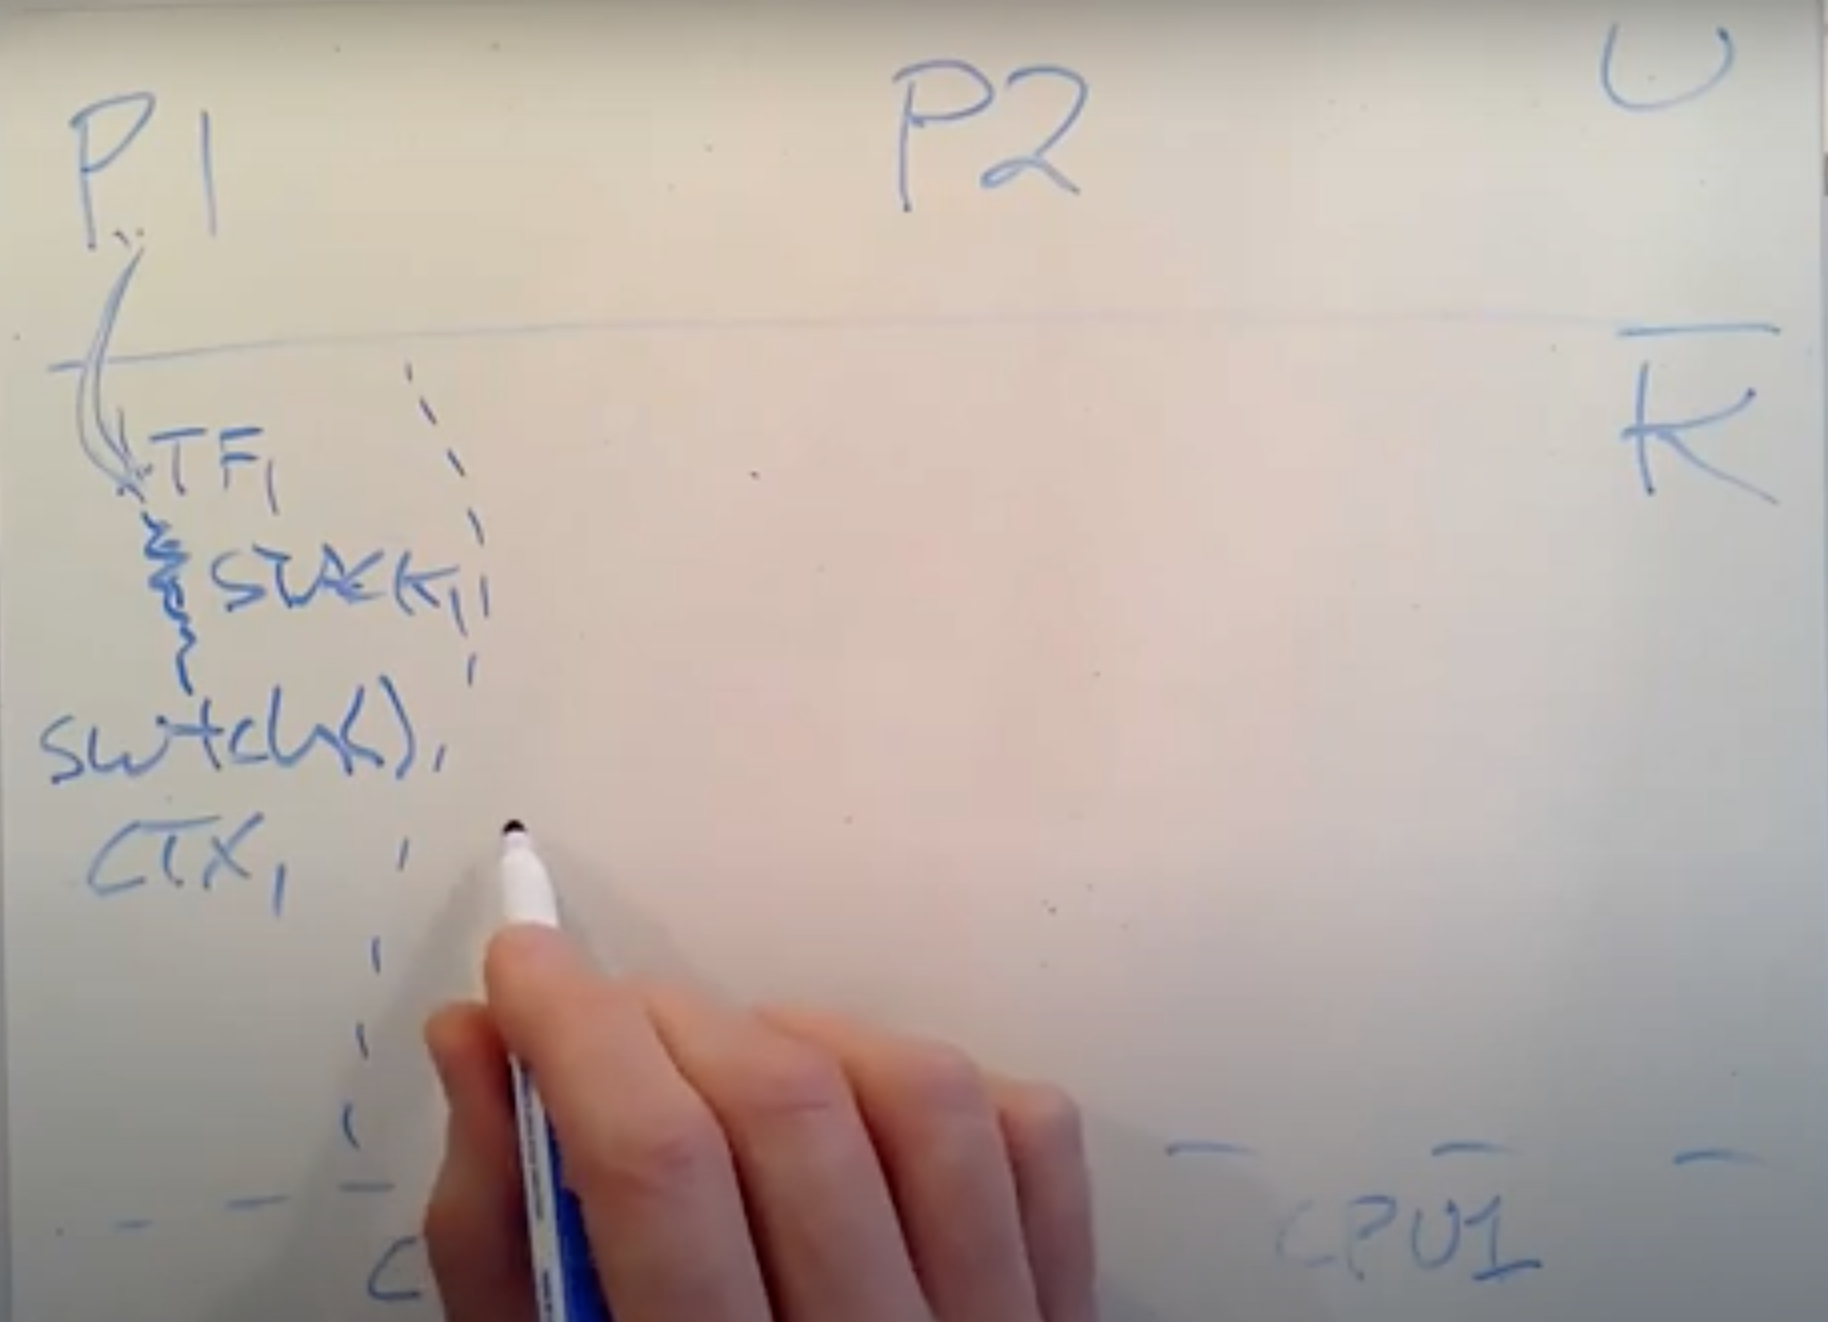 P1 P2 U
K
TF1
STACK1
switch()
CTX1
C
CPU1